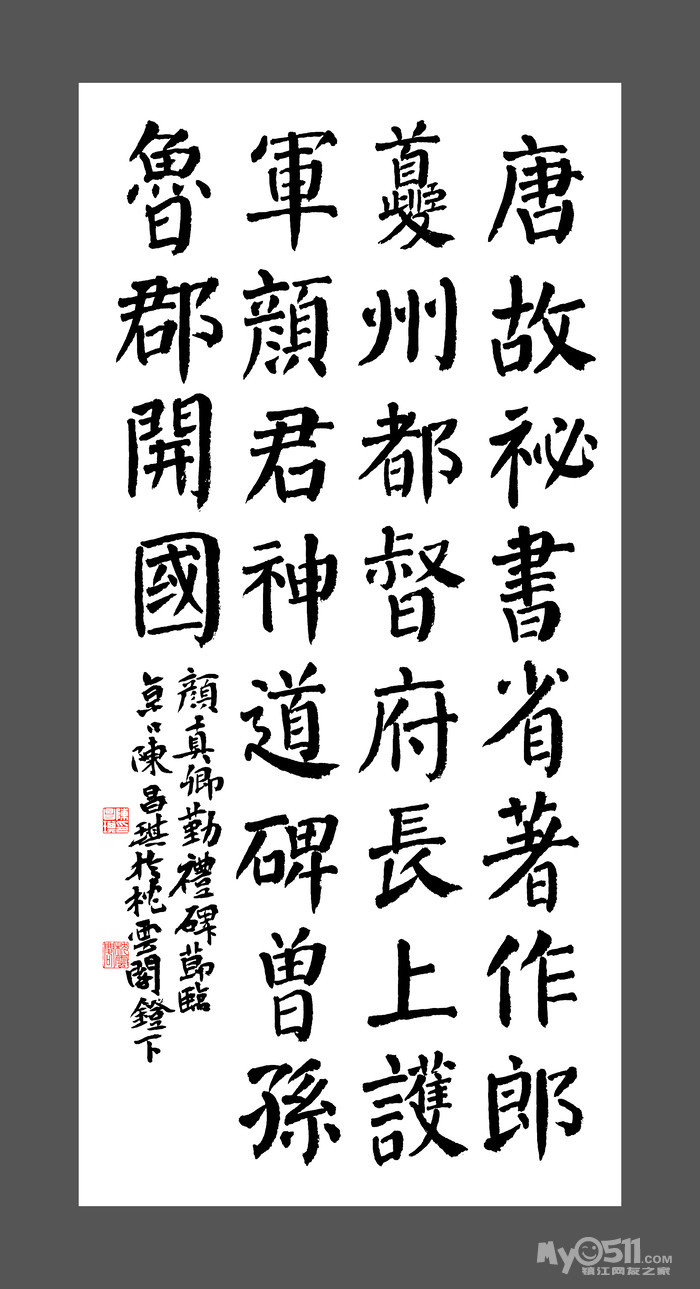 唐故祕書省著作郎
夔州都督府長上護
軍顏君神道碑曾孫
魯郡開國
顏真卿勤禮碑節臨
京口陳昌琪於枕雲閣鐙下
My0511.COM
镇江网友之家